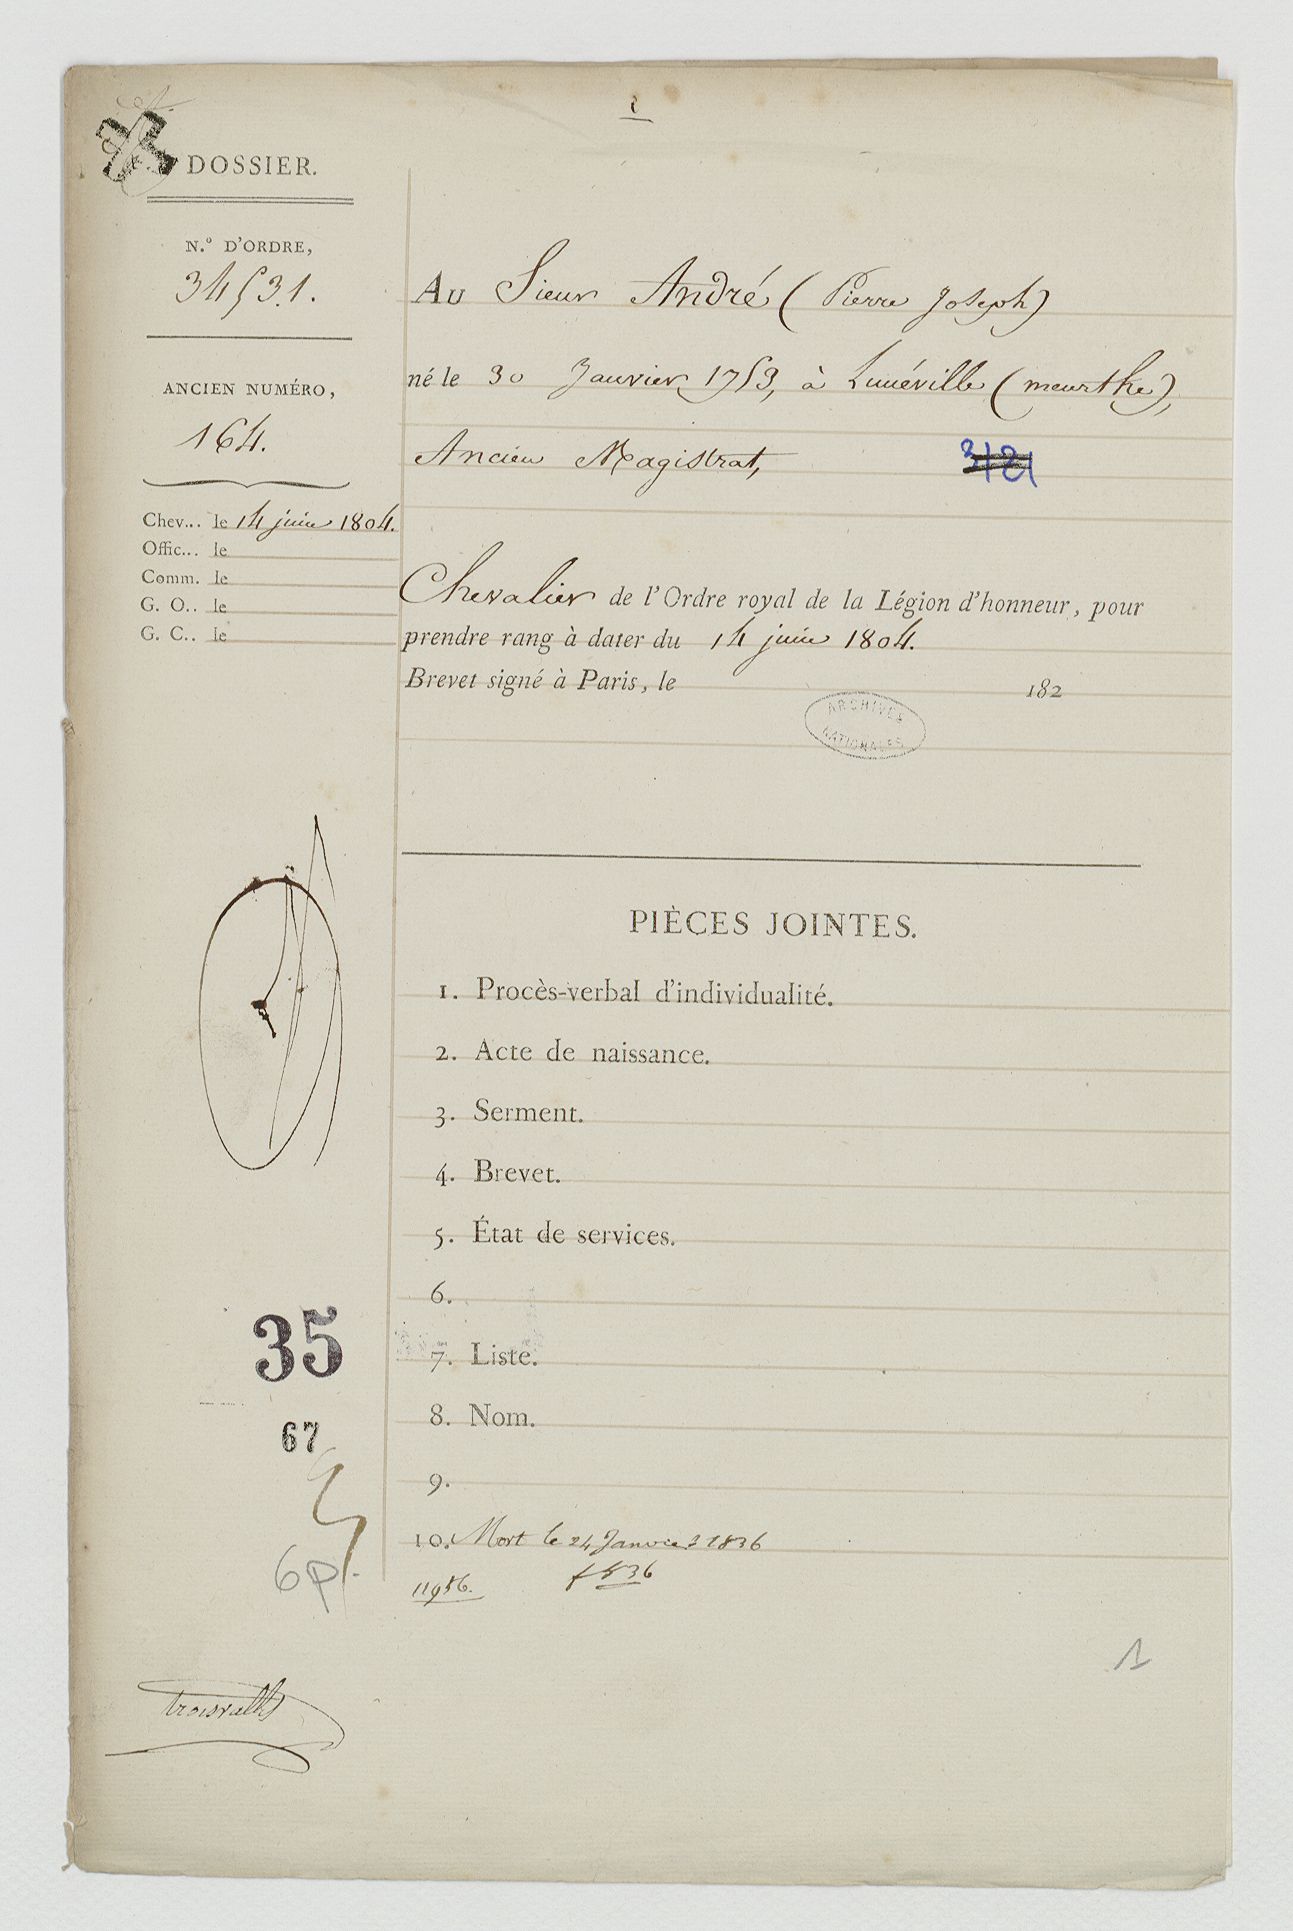 DOSSIER.
N.º D'ORDRE,
34531.
ANCIEN NUMÉRO,
164.
Chev... le 14 juin 1804.
Offic... le
Comm. le
G. O.. le
G. C.. le
AU Sieur André (Pierre Joseph)
né le 30 Janvier 1753, à Lunéville (meurthe),
Ancien Magistrat,
3121
Chevalier de l'Ordre royal de la Légion d'honneur, pour
prendre rang à dater du 14 juin 1804.
Brevet signé à Paris, le 182
ARCHIVES
NATIONALES
PIÈCES JOINTES.
1. Procès-verbal d'individualité.
2. Acte de naissance.
3. Serment.
4. Brevet.
5. État de services.
6.
7. Liste.
8. Nom.
9.
10. Mort le 24 Janvier 1836
11956.
35
67
6p.
1